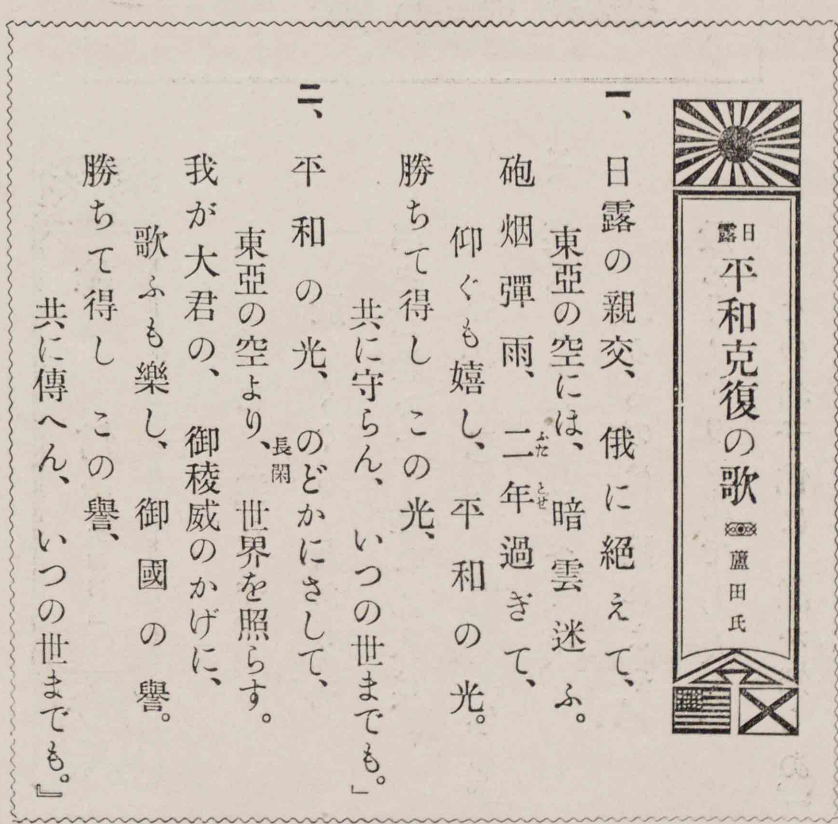 日露 平和克復の歌 蘆田氏
一、日露の親交、俄に絶えて、
東亞の空には、暗雲迷ふ。
砲烟彈雨、二年過ぎて、
ふた とせ
仰ぐも嬉し、平和の光。
勝ちて得し この光、
共に守らん、いつの世までも。」
二、平和の光、のどかにさして、
長閑
東亞の空より、世界を照らす。
我が大君の、御稜威のかげに、
歌ふも樂し、御國の譽。
勝ちて得し この譽、
共に傳へん、いつの世までも。』